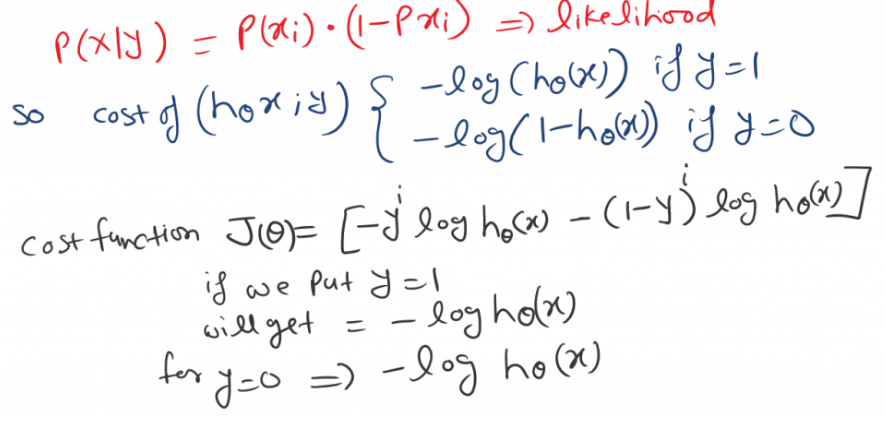 P(x|y) = P(xi) · (1-Pxi) => likelihood
so cost of (hθx ; y) { -log (hθ(x)) if y=1
-log(1-hθ(x)) if y=0
cost function J(θ)= [-y^i log hθ(x) - (1-y)^i log hθ(x)]
if we Put y=1
will get = - log hθ(x)
for y=0 => -log hθ(x)